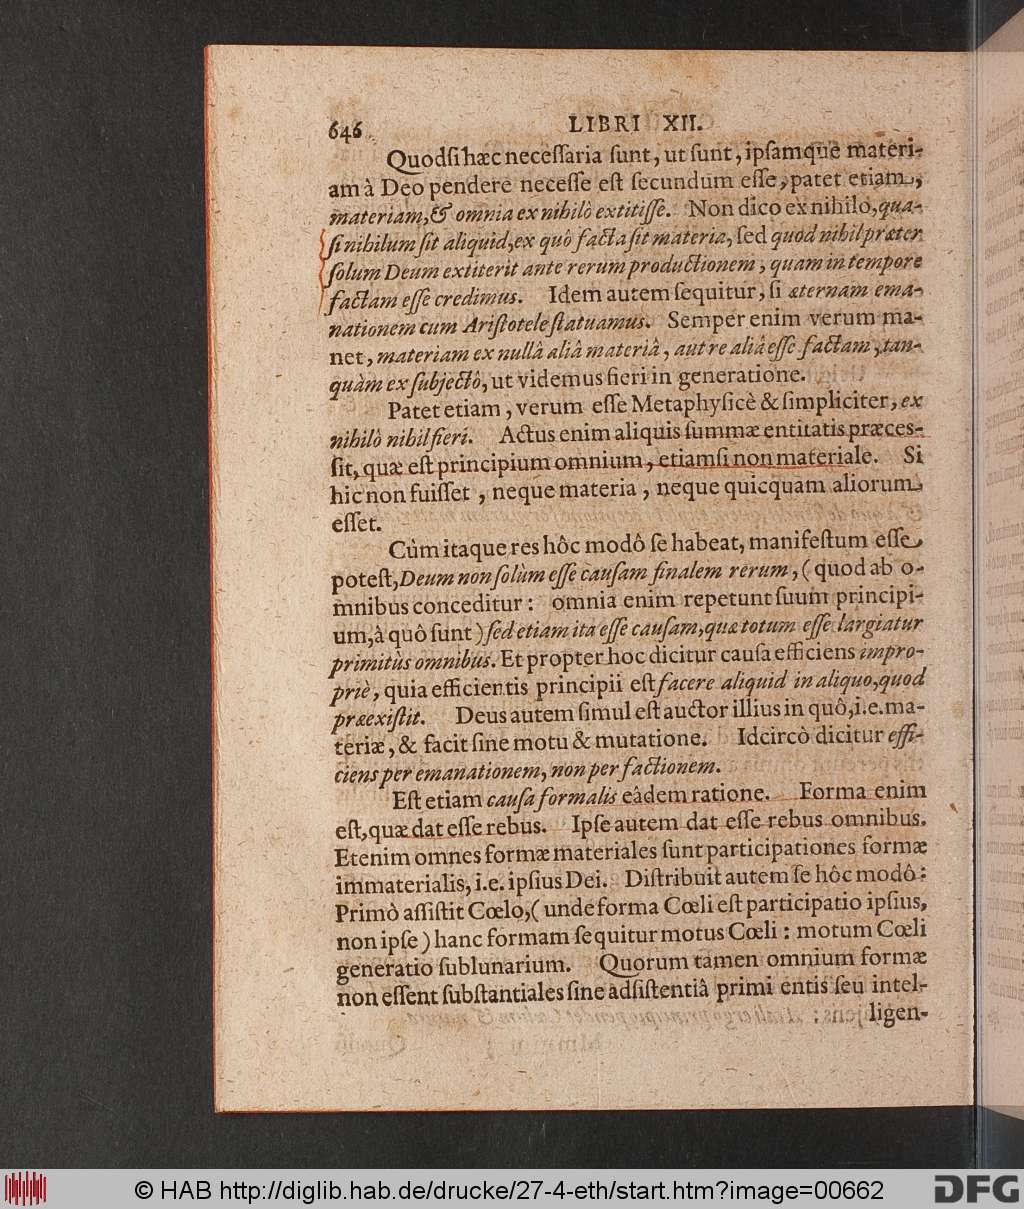 646 LIBRI XII.
Quodſi hæc neceſſaria ſunt, ut ſunt, ipſamque materi-
am à Deo pendere neceſſe eſt ſecundum eſſe, patet etiam,
materiam, & omnia ex nihilô extitiſſe. Non dico ex nihilo, qua-
ſi nihilum ſit aliquid, ex quô facta ſit materia, ſed quod nihil præter
ſolum Deum extiterit ante rerum productionem, quam in tempore
factam eſſe credimus. Idem autem ſequitur, ſi æternam ema-
nationem cum Ariſtotele ſtatuamus. Semper enim verum ma-
net, materiam ex nullâ aliâ materiâ, aut re aliâ eſſe factam, tan-
quàm ex ſubjectô, ut videmus fieri in generatione.
Patet etiam, verum eſſe Metaphyſicè & ſimpliciter, ex
nihilô nihil fieri. Actus enim aliquis ſummæ entitatis præceſ-
ſit, quæ eſt principium omnium, etiamſi non materiale. Si
hic non fuiſſet, neque materia, neque quicquam aliorum
eſſet.
Cùm itaque res hôc modô ſe habeat, manifeſtum eſſe
poteſt, Deum non ſolùm eſſe cauſam finalem rerum, (quod ab o-
mnibus conceditur: omnia enim repetunt ſuum principi-
um, à quô ſunt) ſed etiam ita eſſe cauſam, quæ totum eſſe largiatur
primitùs omnibus. Et propter hoc dicitur cauſa efficiens impro-
priè, quia efficientis principii eſt facere aliquid in aliquo, quod
præexiſtit. Deus autem ſimul eſt auctor illius in quô, i.e. ma-
teriæ, & facit ſine motu & mutatione. Idcircò dicitur effi-
ciens per emanationem, non per factionem.
Eſt etiam cauſa formalis eâdem ratione. Forma enim
eſt, quæ dat eſſe rebus. Ipſe autem dat eſſe rebus omnibus.
Etenim omnes formæ materiales ſunt participationes formæ
immaterialis, i.e. ipſius Dei. Diſtribuit autem ſe hôc modô:
Primò aſſiſtit Cœlo, (unde forma Cœli eſt participatio ipſius,
non ipſe) hanc formam ſequitur motus Cœli: motum Cœli
generatio ſublunarium. Quorum tamen omnium formæ
non eſſent ſubſtantiales ſine adſiſtentiâ primi entis ſeu intel-
ligen-
© HAB http://diglib.hab.de/drucke/27-4-eth/start.htm?image=00662
DFG